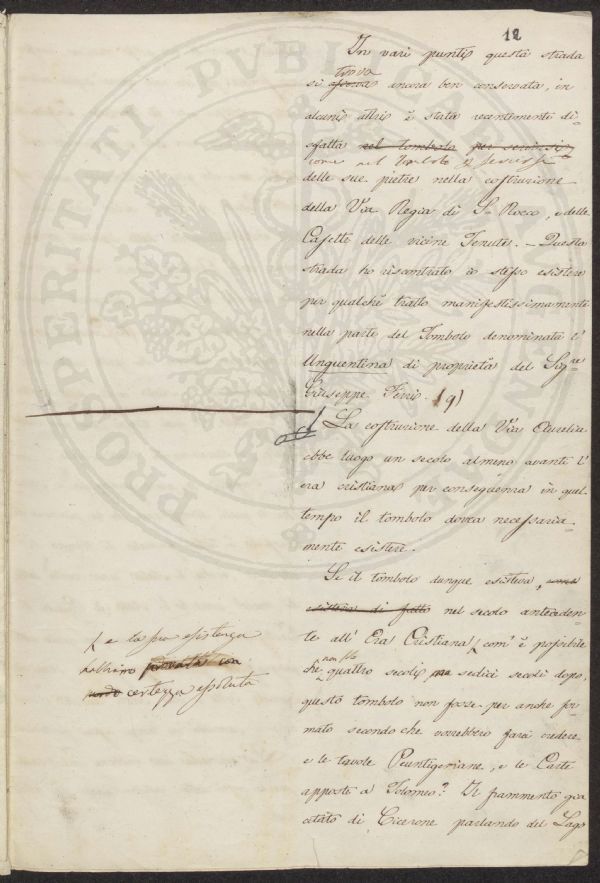 12
In vari punti questa strada
trova
si ancora ben conservata, in
alcuni altri è stata recentemente di-
sfatta nel tombolo per servirsi
come nel Tombolo p servirsi
delle sue pietre nella costruzione
della Via Regia di S. Rocco, e delle
Casette delle vicine Tenute. – Questa
strada ho riscontrato io stesso esistere
per qualche tratto manifestissimamente
nella parte del Tombolo denominata l'
Unguentina di proprietà del Sigre
Giuseppe (9)
La costruzione della Via Aurelia
ebbe luogo un secolo almeno avanti l'
era cristiana per conseguenza in quel
tempo il tombolo dovea necessaria-
mente esistere.
Se il tombolo dunque esisteva, come
esisteva di fatto nel secolo anteceden-
te all' Era Cristiana, com' è possibile
non solo
che quattro secoli, ma sedici secoli dopo,
questo tombolo non fosse per anche for-
mato secondo che vorrebbero farci credere
e le tavole Peutigeriane, e le Carte
apposte a Tolomeo? Il frammento già
citato di Cicerone parlando del Lago
e la sua esistenza
abbiamo provata con
certezza assoluta
PROSPERITATI PUBLICAE